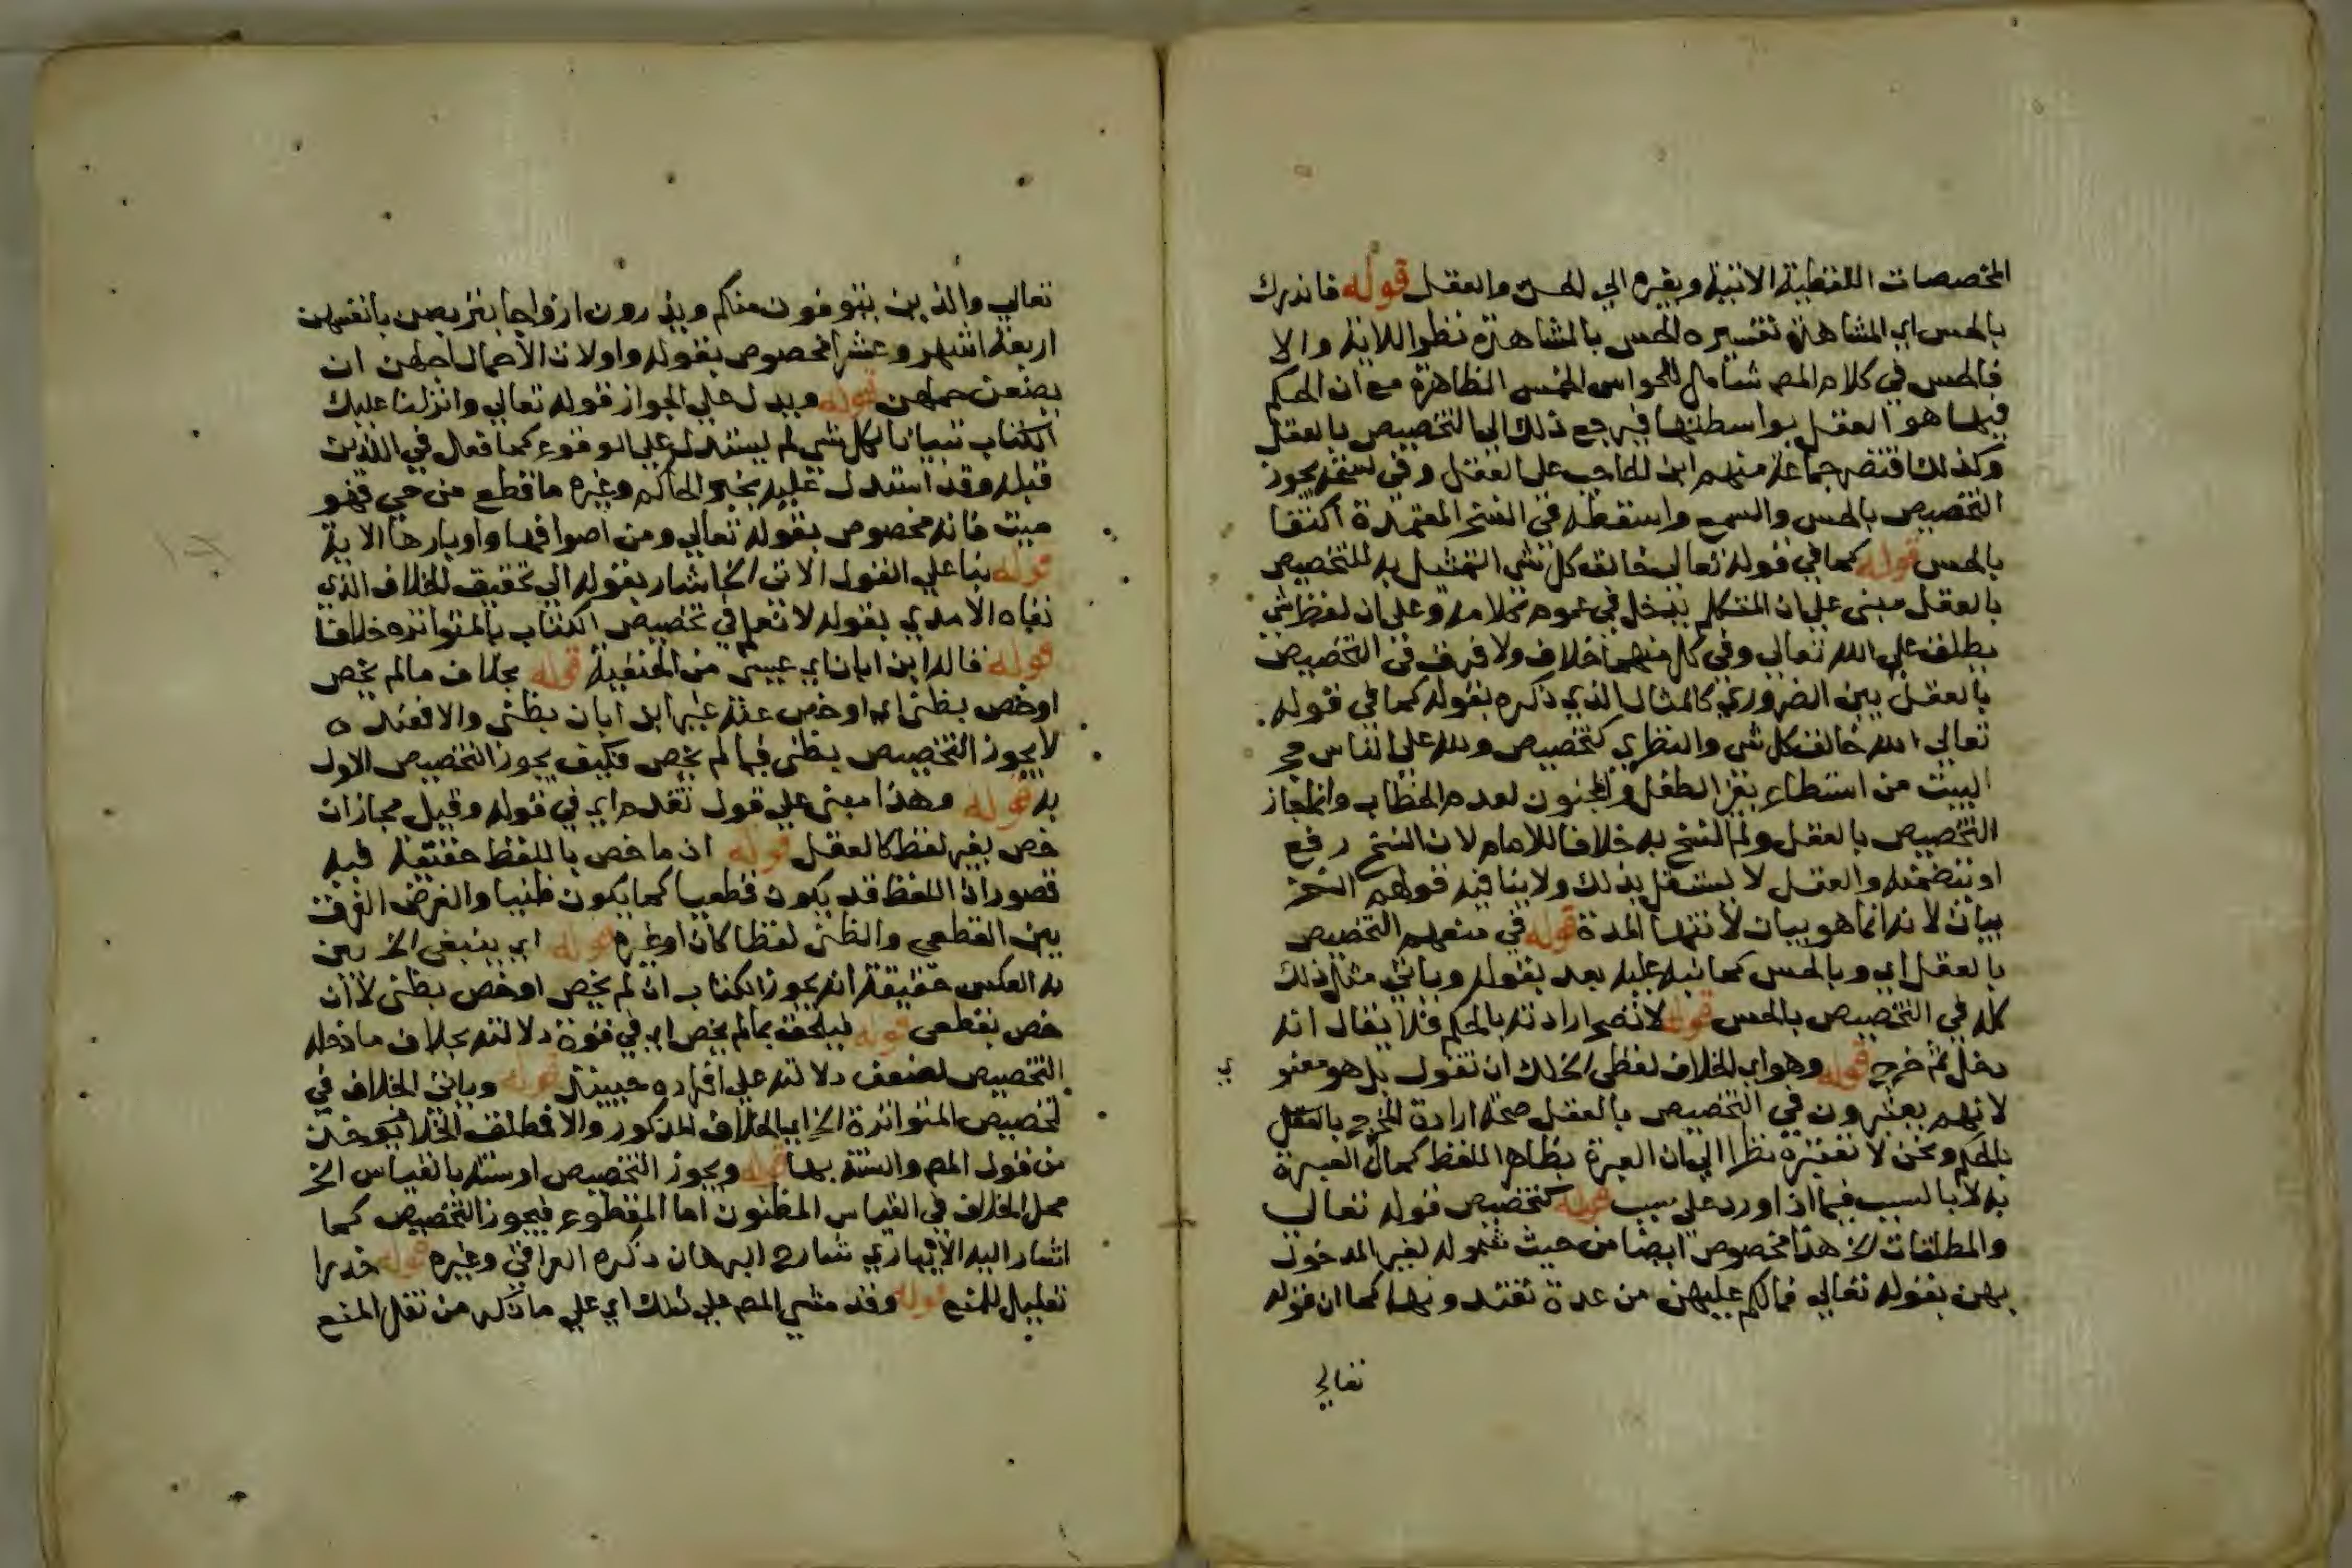 المخصصات اللفظية الاتية وبغيره الى الحس والعقل قوله فاندرك
بالحس اي المشاهدة تفسيره الحس بالمشاهدة نظرا للاية والا
فالحس في كلام المص شامل للحواس الخمس الظاهرة مع ان الحكم
فيها هو العقل بواسطتها فيرجع ذلك الى التخصيص بالعقل
وكذلك اقتصر جماعة منهم ابن الحاجب على العقل وفي نسخة يجوز
التخصيص بالحس والسمع واسقطه في النسخ المعتمدة اكتفا
بالحس قوله كما في قوله تعالى خالق كل شي التمثيل به للتخصيص
بالعقل مبني على ان المتكلم يدخل في عموم كلامه وعلى ان لفظ شي
يطلق على الله تعالى وفي كل منهما خلاف ولا فرق في التخصيص
بالعقل بين الضروري كالمثال الذي ذكره بقوله كما في قوله
تعالى الله خالق كل شي والنظري كتخصيص ولله على الناس حج
البيت من استطاع بغير الطفل والمجنون لعدم الخطاب وانما جاز
التخصيص بالعقل ولم النسخ به خلافا للامام لان النسخ رفع
او يتضمنه والعقل لا يستقل بذلك ولا ينافيه قولهم النسخ
بيان لانه انما هو بيان لانتها المدة قوله في منعهم التخصيص
بالعقل اي وبالحس كما نبه عليه بعد بقوله وياتي مثل ذلك
كله في التخصيص بالحس قوله لا تصح ارادته بالحكم فلا يقال انه
دخل ثم خرج قوله وهو اي الخلاف لفظي الخ لك ان تقول بل هو معنوي
لانهم يعتبرون في التخصيص بالعقل صحة ارادة المخرج بالعقل
بالحكم ونحن لا نعتبره نظرا الى ان العبرة بظاهر اللفظ كما ان العبرة
به لا بالسبب فيما اذا ورد على سبب قوله كتخصيص قوله تعالى
والمطلقات الخ هذا مخصوص ايضا من حيث شموله لغير المدخول
بهن بقوله تعالى فما لكم عليهن من عدة تعتدونها كما ان قوله
تعالى
تعالى والذين يتوفون منكم ويذرون ازواجا يتربصن بانفسهن
اربعة اشهر وعشرا مخصوص بقوله واولات الاحمال اجلهن ان
يضعن حملهن قوله ويدل على الجواز قوله تعالى وانزلنا عليك
الكتاب تبيانا لكل شي لم يستدل على الوقوع كما فعل في اللذين
قبله وقد استدل عليه بخبر الحاكم وغيره ما قطع من حي فهو
ميت فانه مخصوص بقوله تعالى ومن اصوافها واوبارها الاية
قوله بنا على القول الاتي الخ اشار بقوله الى تحقيق الخلاف الذي
نفاه الامدي بقوله لا نعلم في تخصيص الكتاب بالمتواتره خلافا
قوله قاله ابن ابان اي عيسى من الحنفية قوله بخلاف ما لم يخص
او خص بظني اي او خص عند غير ابن ابان بظني والا فعنده
لا يجوز التخصيص بظني فيما لم يخص فكيف يجوز التخصيص الاول
به قوله وهذا مبني على قول تقدم اي في قوله وقيل مجاز ان
خص بغير لفظ كالعقل قوله ان ما خص باللفظ حقيقة فيه
قصور اذ اللفظ قد يكون قطعيا كما يكون ظنيا والغرض الفرق
بين القطعي والظني لفظا كان او غيره قوله اي ينبغي الخ بين
به العكس حقيقة انه يجوز الكتاب ان لم يخص او خص بظني لا ان
خص بقطعي قوله فيلحق بما لم يخص اي في قوة دلالته بخلاف ما دخله
التخصيص لضعف دلالته على افراده حينئذ قوله وياتي الخلاف في
تخصيص المتواترة الخ اي الخلاف المذكور والا فمطلق الخلاف يوخذ
من قول المص والسنة بها قوله ويجوز التخصيص او سنة بالقياس الخ
محل الخلاف في القياس المظنون اما المقطوع فيجوز التخصيص كما
اشار اليه الابياري شارح البرهان ذكره العراقي وغيره قوله حذرا
تعليل للمنع قوله وقد مشى المص على ذلك اي على ما ذكر من نقل المنع